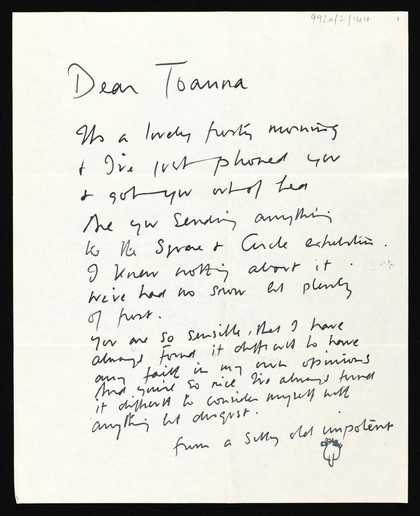 992a/2/144
Dear Joanna
It's a lovely frosty morning
& I've just phoned you
& got you out of bed
Are you sending anything
to the Square & Circle exhibition.
I know nothing about it.
we've had no snow but plenty
of frost.
You are so sensible, that I have
always found it difficult to have
any faith in my own opinions
And you're so nice I've always found
it difficult to consider myself with
anything but disgust.
from a silly old impotent